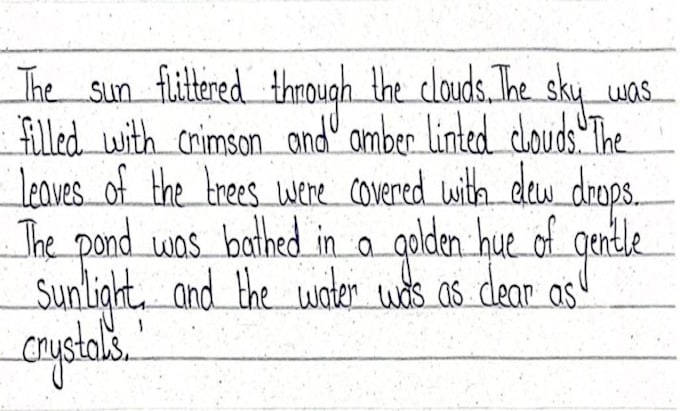 The sun flittered through the clouds. The sky was
filled with crimson and amber linted clouds. The
leaves of the trees were covered with dew drops.
The pond was bathed in a golden hue of gentle
sunlight, and the water was as clear as
crystals.'